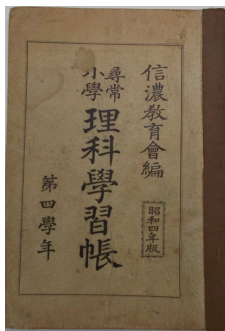 信濃教育會編
昭和四年版
尋常
小學
理科學習帳
第四學年